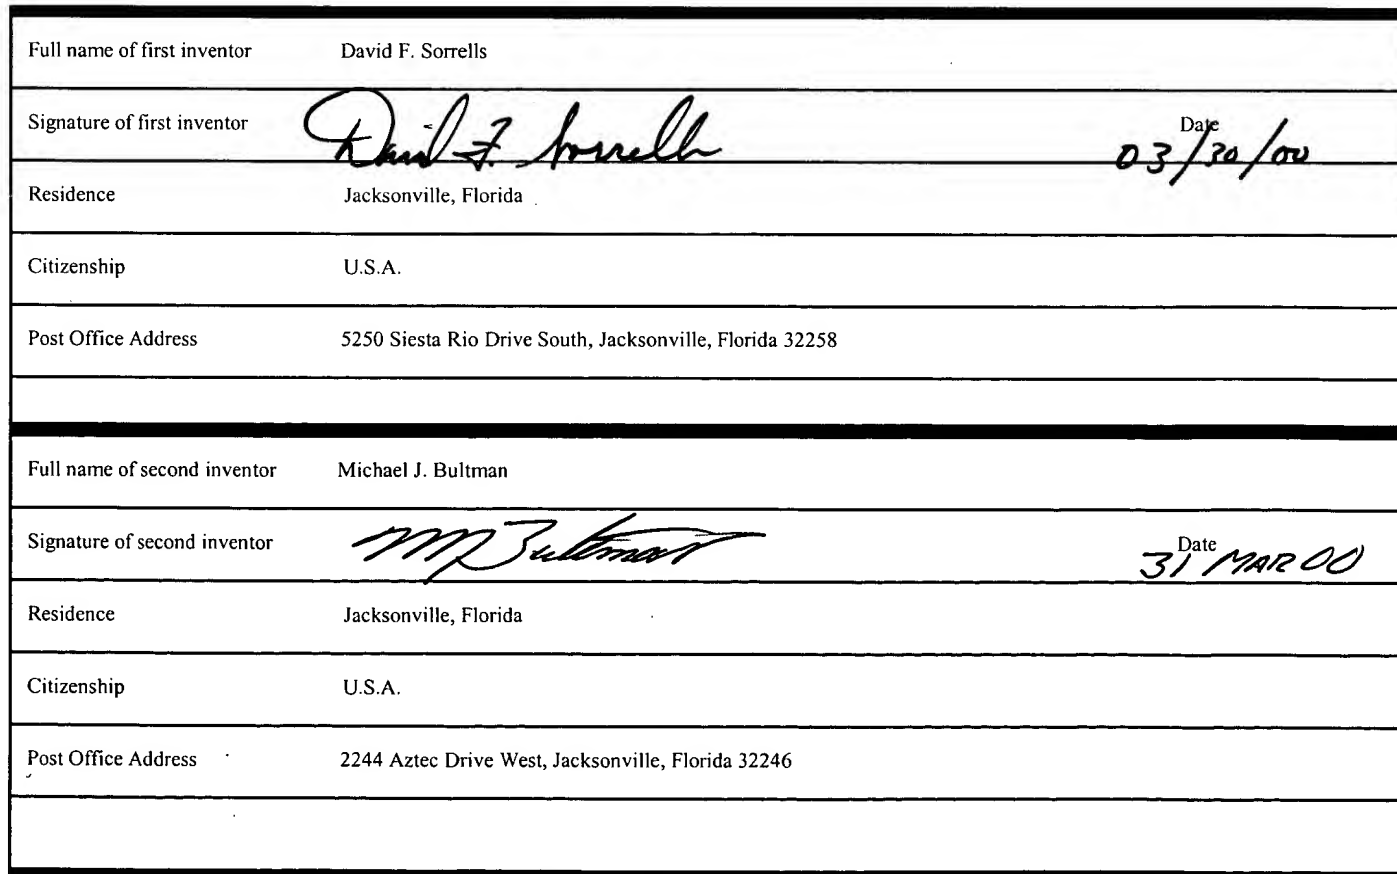 Full name of first inventor David F. Sorrells
Signature of first inventor David F. Sorrells Date 03/30/00
Residence Jacksonville, Florida
Citizenship U.S.A.
Post Office Address 5250 Siesta Rio Drive South, Jacksonville, Florida 32258
Full name of second inventor Michael J. Bultman
Signature of second inventor MJBultman Date 31 MAR 00
Residence Jacksonville, Florida
Citizenship U.S.A.
Post Office Address 2244 Aztec Drive West, Jacksonville, Florida 32246